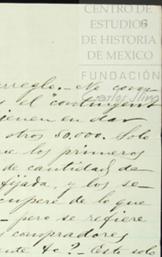 CENTRO DE
ESTUDIOS
DE HISTORIA
DE MEXICO
FUNDACIÓN
Carlos Slim
6
arreglo. No con-
el "contingente
ienen en dar
otros 50.000. Solo
ue los primeros
de cantidad de-
fijada, y los se-
cupero de lo que
- pero se refiere
s compradores
nte &c? Esto solo